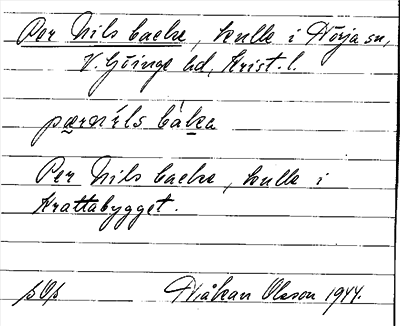 Per Nils backe, kulle i Nörja sn,
V. Göinge hd, Krist. l.
pærnils báka
Per Nils backe, kulle i
Krattabygget.
Håkan Olsson 1944.